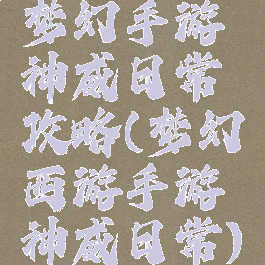 梦幻手游
神威日常
攻略(梦幻
西游手游
神威日常)